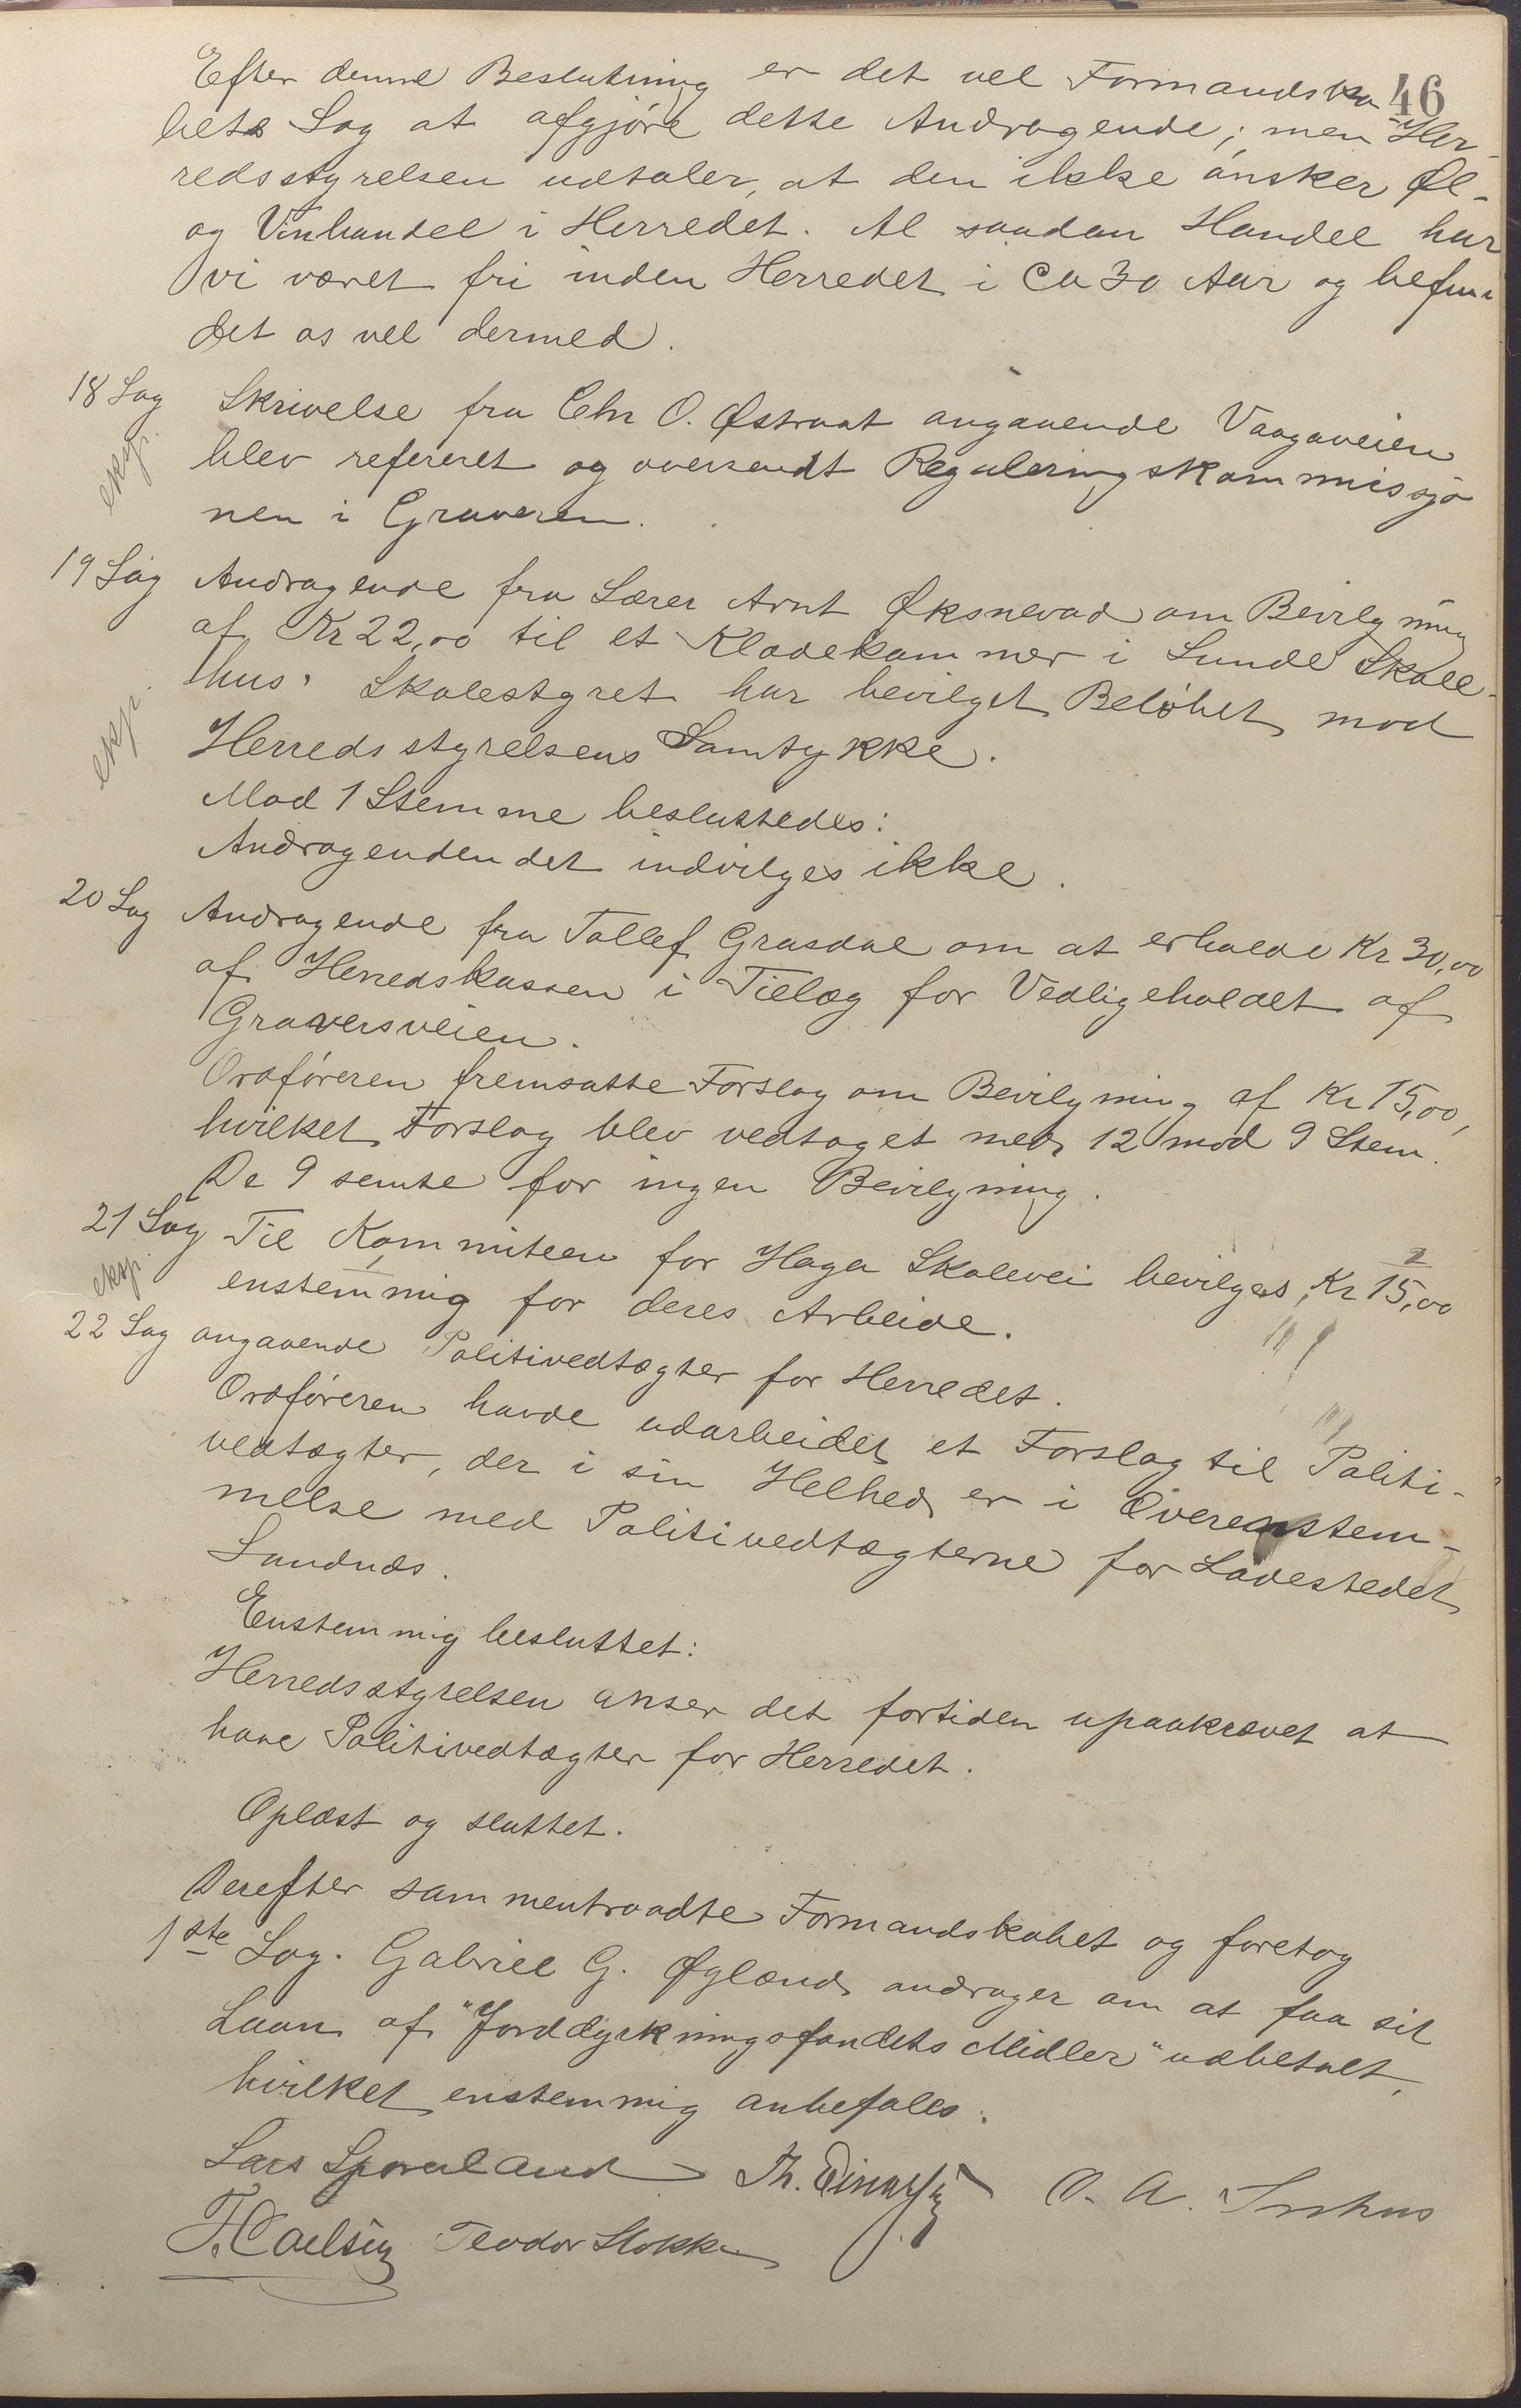 46
Efter denne Beslutning er det vel Formandska-
bets Sag at afgjøre dette Andragende; men Her-
redsstyrelsen udtaler, at den ikke ønsker Øl-
og Vinhandel i Herredet. Al saadan Handel har
vi været fri inden Herredet i Ca 30 Aar og befun-
det os vel dermed.
18 Sag Skrivelse fra Chr O. Østraat angaaende Vaagaveien
eksp. blev refereret og oversendt Reguleringskommissjo
nen i Graveren.
19 Sag Andragende fra Lærer Arnt Øksnevad om Bevilgning
af Kr 22,00 til et Klædekammer i Lunde Skole-
eksp. hus. Skolestyret har bevilget Beløbet mod
Herredsstyrelsens Samtykke.
Mod 1 Stemme besluttedes:
Andragenden det indvilges ikke.
20 Sag Andragende fra Tollef Grasdal om at erholde Kr 30,00
af Herredskassen i Tillæg for Vedligeholdet af
Graversveien.
Ordføreren fremsatte Forslag om Bevilgning af Kr 15,00,
hvilket Forslag blev vedtaget med 12 mod 9 Stem.
De 9 semte for ingen Bevilgning.
21 Sag Til Kommiteen for Hagen Skolevei bevilges Kr 15,00
eksp. enstemmig for deres Arbeide.
22 Sag angaaende Politivedtægter for Herredet.
Ordføreren havde udarbeidet et Forslag til Politi-
vedtægter, der i sin Helhed er i Overenstem-
melse med Politivedtægterne for Ladestedet
Sandnæs.
Enstemmig besluttet:
Herredsstyrelsen anser det fortiden upaakrævet at
have Politivedtægter for Herredet.
Oplæst og sluttet.
Derefter sammentraadte Formandskabet og foretog
1ste Sag. Gabriel G. Øglænd andrager om at faa sit
Laan af "Jorddyrkningsfondets Midler" udbetalt,
hvilket enstemmig anbefales.
Lars Sporaland Th. Einarsen O. A.
T. Carlsen Teodor Stokka